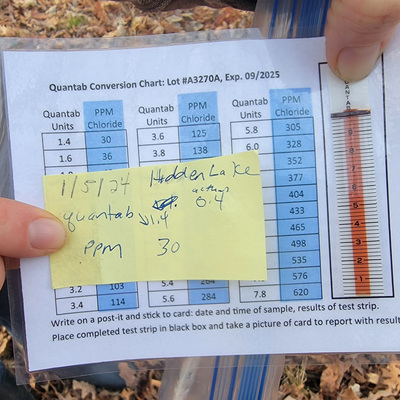 Quantab Conversion Chart: Lot #A3270A, Exp. 09/2025
Quantab Units PPM Chloride Quantab Units PPM Chloride Quantab Units PPM Chloride
1.4 30 3.6 125 5.8 305
1.6 36 3.8 138 6.0 328
352
377
404
433
465
498
535
3.2 103 5.4 264 576
3.4 114 5.6 284 7.8 620
1/5/24 Hidden Lake
quantab ↓1.4 0.4
PPM 30
QUANTAB
Write on a post-it and stick to card: date and time of sample, results of test strip.
Place completed test strip in black box and take a picture of card to report with result